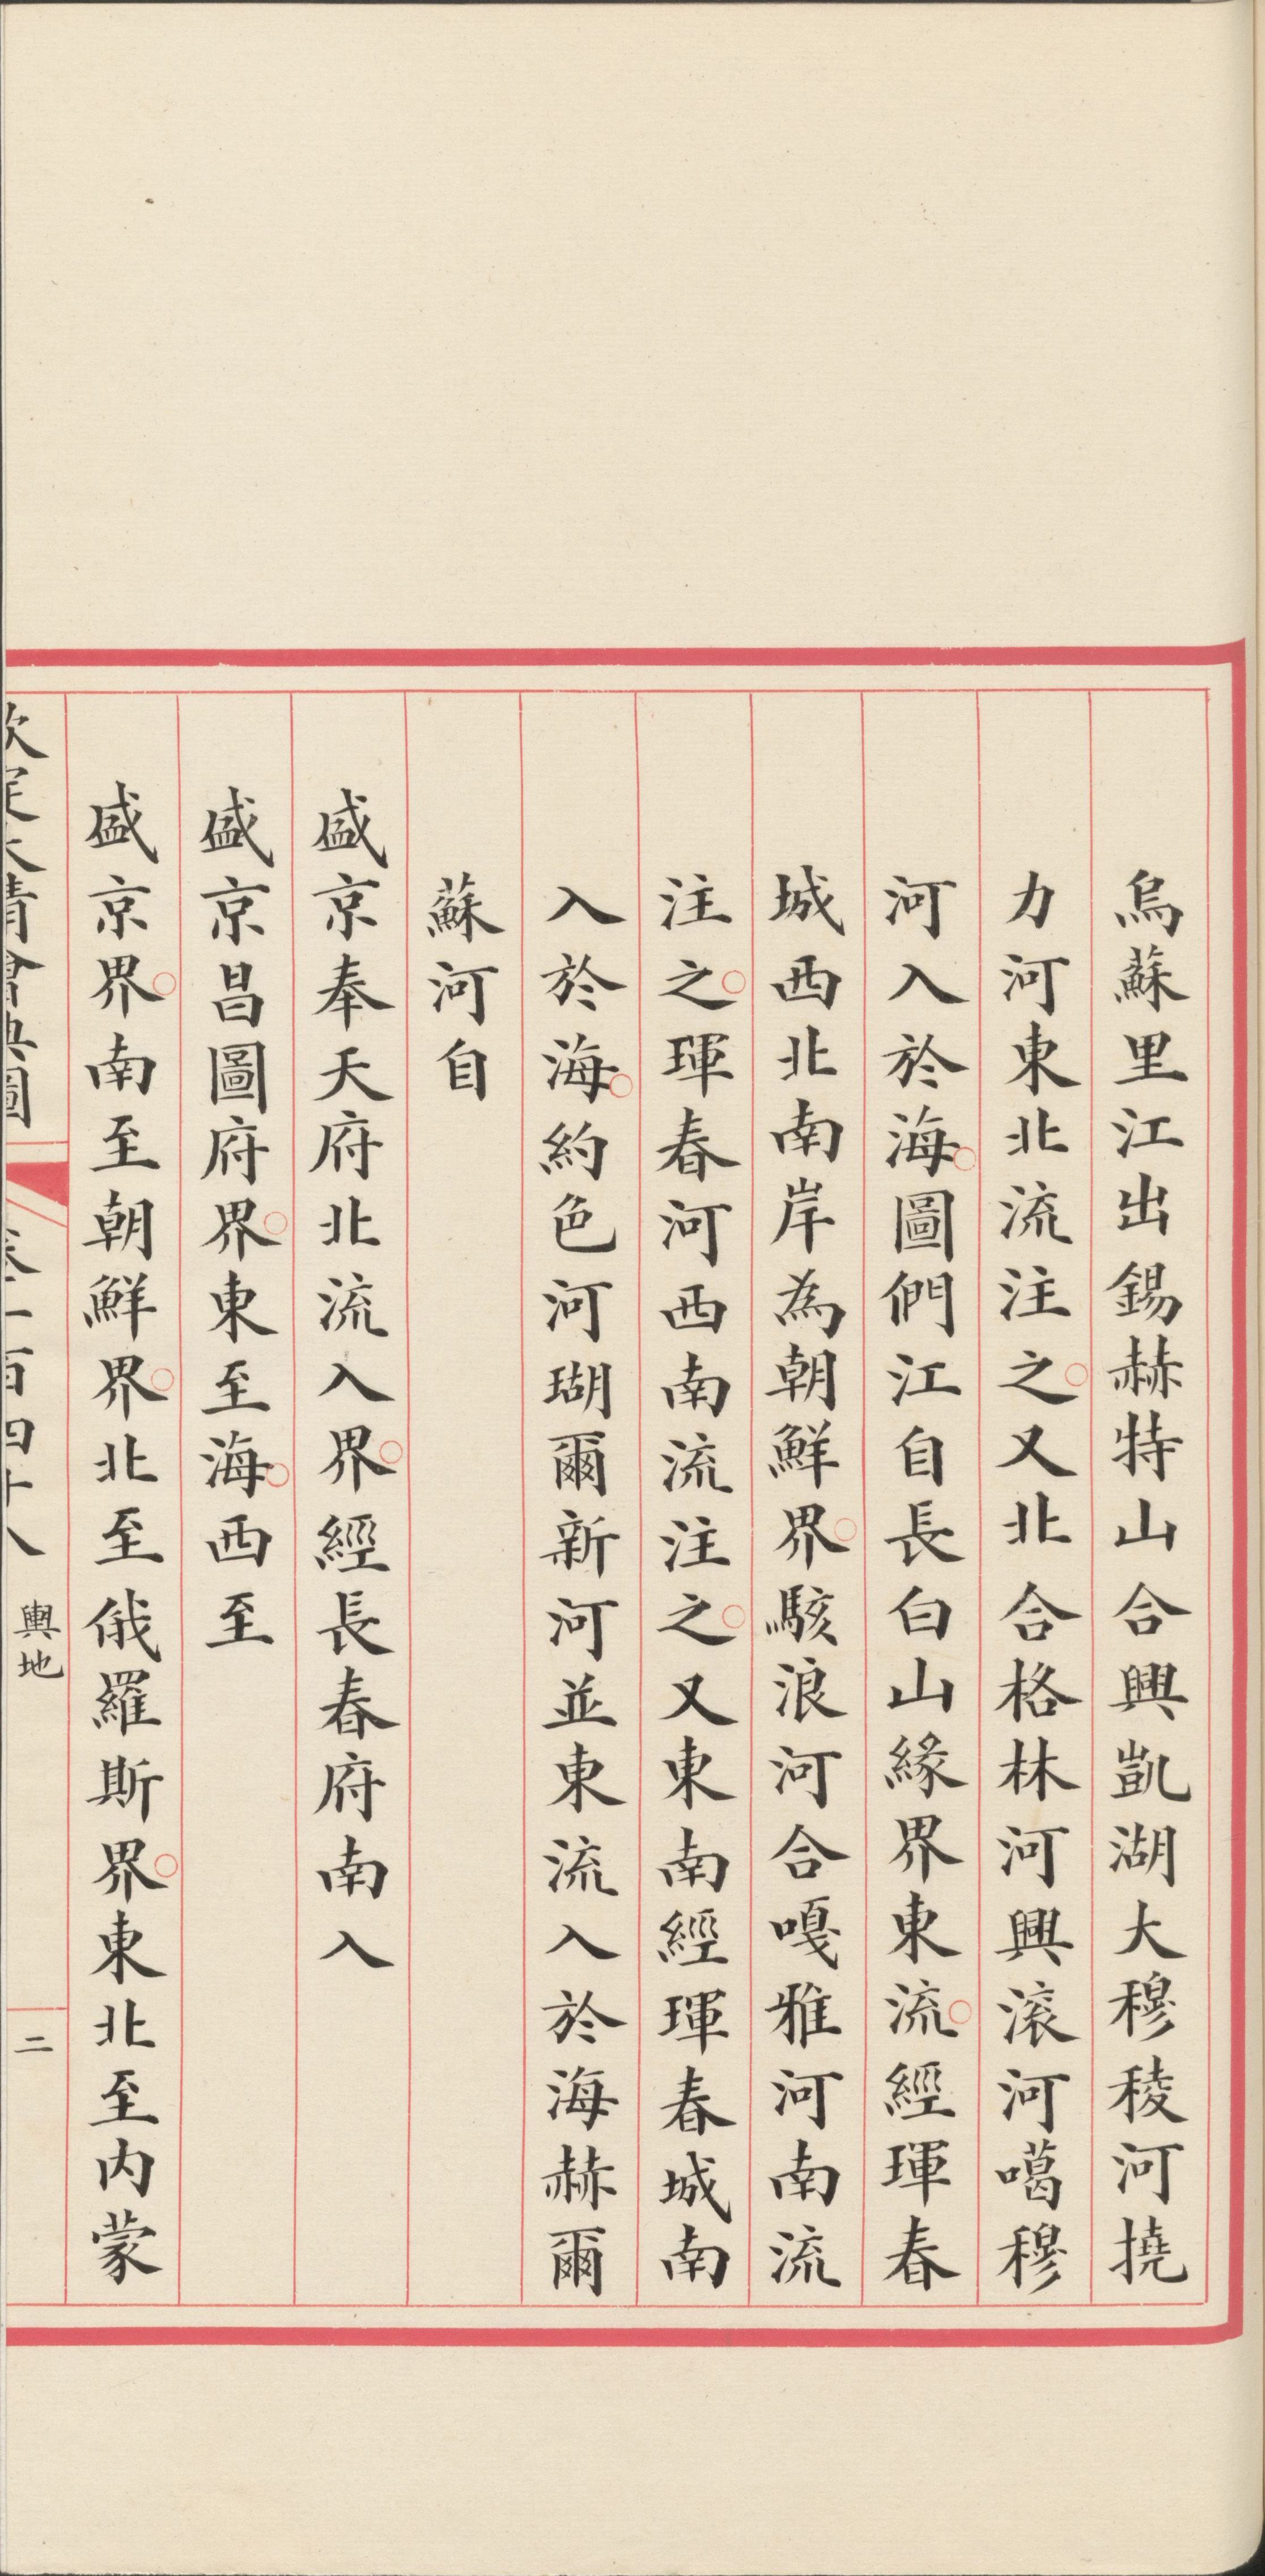 烏蘇里江出錫赫特山合興凱湖大穆稜河撓
力河東北流注之又北合格林河興滾河噶穆
河入於海圖們江自長白山緣界東流經琿春
城西北南岸為朝鮮界駭浪河合嘎雅河南流
注之琿春河西南流注之又東南經琿春城南
入於海約色河瑚爾新河並東流入於海赫爾
蘇河自
盛京奉天府北流入界經長春府南入
盛京昌圖府界東至海西至
盛京界南至朝鮮界北至俄羅斯界東北至內蒙
欽定大清會典圖 卷一百四十八 輿地 二